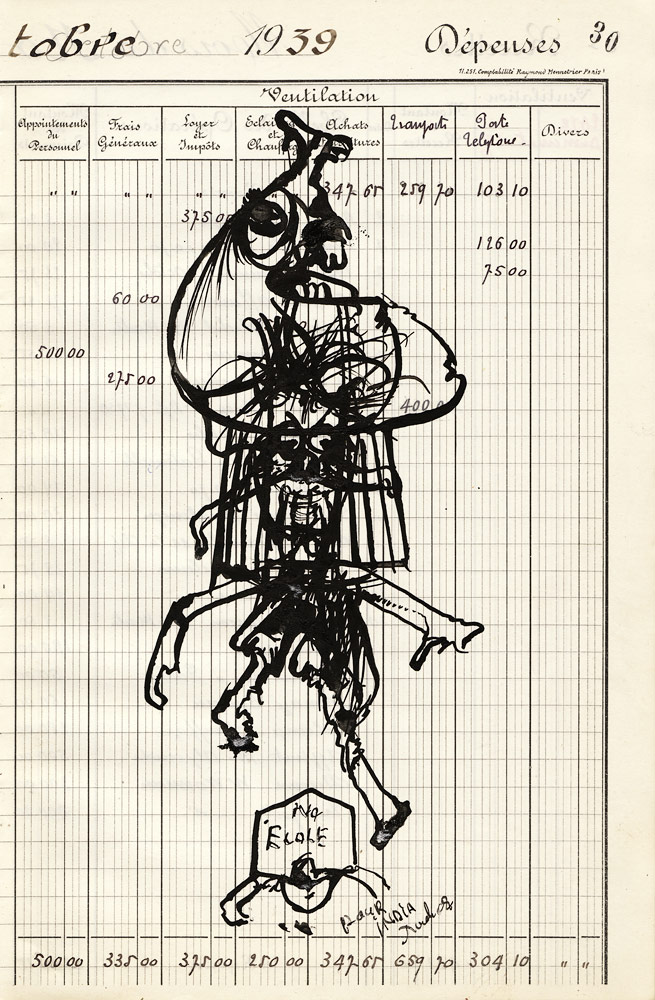 tobre 1939 Dépenses 30
11.251. Comptabilité Raymond Monnetrier Paris
Ventilation
Appointements du Personnel
Frais Généraux
Loyer et Impôts
Eclai et Chauf
Achats tures
Transports
Poste Telephone.
Divers
" " " " " " " 347 65 259 70 103 10
375 00
126 00
75 00
60 00
500 00
275 00
400 0
No
ECOLE
INDIA
500 00 335 00 375 00 250 00 347 65 659 70 304 10 " "